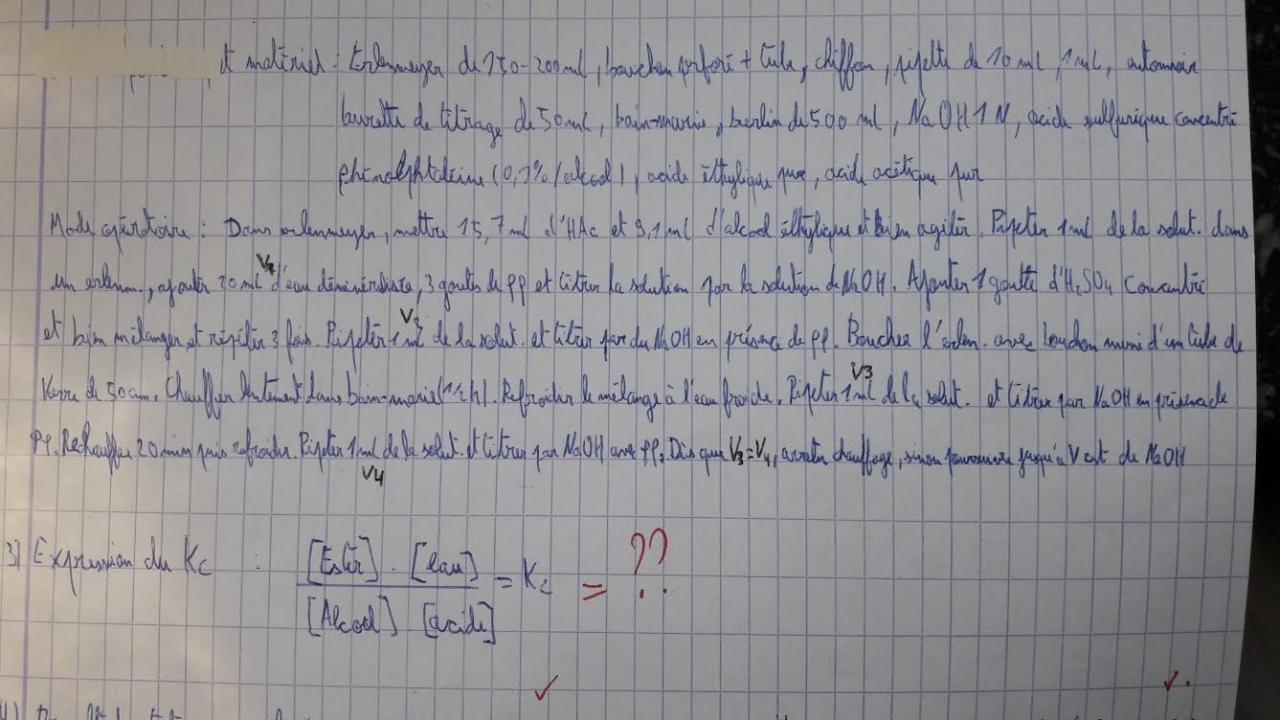 et matériel : Erlenmeyer de 150-200 ml, bouchon perforé + tube, chiffon, pipette de 10 ml, 1 ml,
burette de titrage de 50 ml, bain-marie, berlin de 500 ml, NaOH 1 N, acide sulfurique concentré
phénolphtaléine (0,1% / alcool), acide éthylique pur, acide acétique pur
Mode opératoire : Dans erlenmeyer, mettre 15,7 ml d'HAc et 9,1 ml d'alcool éthylique et bien agiter. Pipeter 1 ml de la solut. dans
un erlenm., ajouter 20 ml d'eau déminéralisée, 3 gouttes de pp et titrer la solution par la solution de NaOH. Ajouter 1 goutte d'H2SO4 concentré
V1
et bien mélanger et répéter 3 fois. Pipeter 1 ml de la solut. et titrer par du NaOH en présence de pp. Boucher l'erlen. avec bouchon muni d'un tube de
V2
verre de 50 cm. Chauffer lentement dans bain-marie (1/2 h). Refroidir le mélange à l'eau froide. Pipeter 1 ml de la solut. et titrer par NaOH en présence de
V3
pp. Rechauffer 20 min puis refroidir. Pipeter 1 ml de la solut. et titrer par NaOH avec pp. Dès que V3 = V4, arreter chauffage, sinon poursuivre jusqu'à V cst de NaOH
V4
3) Expression du Kc : [Ester] . [eau] = Kc = ??
[Alcool] [acide]